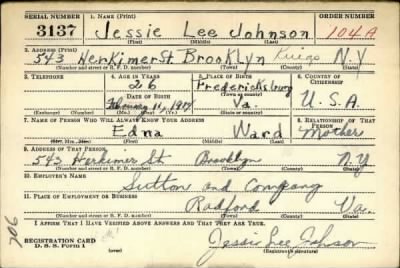 SERIAL NUMBER 1. NAME (Print) ORDER NUMBER
3137 Jessie Lee Johnson 104A
(First) (Middle) (Last)
2. ADDRESS (Print)
543 Herkimer St. Brooklyn Kings N.Y
(Number and street or R. F. D. number) (Town) (County) (State)
3. TELEPHONE 4. AGE IN YEARS 5. PLACE OF BIRTH 6. COUNTRY OF CITIZENSHIP
26 Fredericksburg
DATE OF BIRTH
February 11, 1914 Va. U.S.A.
7. NAME OF PERSON WHO WILL ALWAYS KNOW YOUR ADDRESS 8. RELATIONSHIP OF THAT PERSON
Edna Ward Mother
(Mr., Mrs., Miss) (First) (Middle) (Last)
9. ADDRESS OF THAT PERSON
543 Herkimer St. Brooklyn N.Y
(Number and street or R. F. D. number) (Town) (County) (State)
10. EMPLOYER'S NAME
Sutton and Company
11. PLACE OF EMPLOYMENT OR BUSINESS
Radford Va.
(Number and street or R. F. D. number) (Town) (County) (State)
I AFFIRM THAT I HAVE VERIFIED ABOVE ANSWERS AND THAT THEY ARE TRUE.
206
REGISTRATION CARD
D. S. S. Form 1
Jessie Lee Johnson
(Registrant's signature)